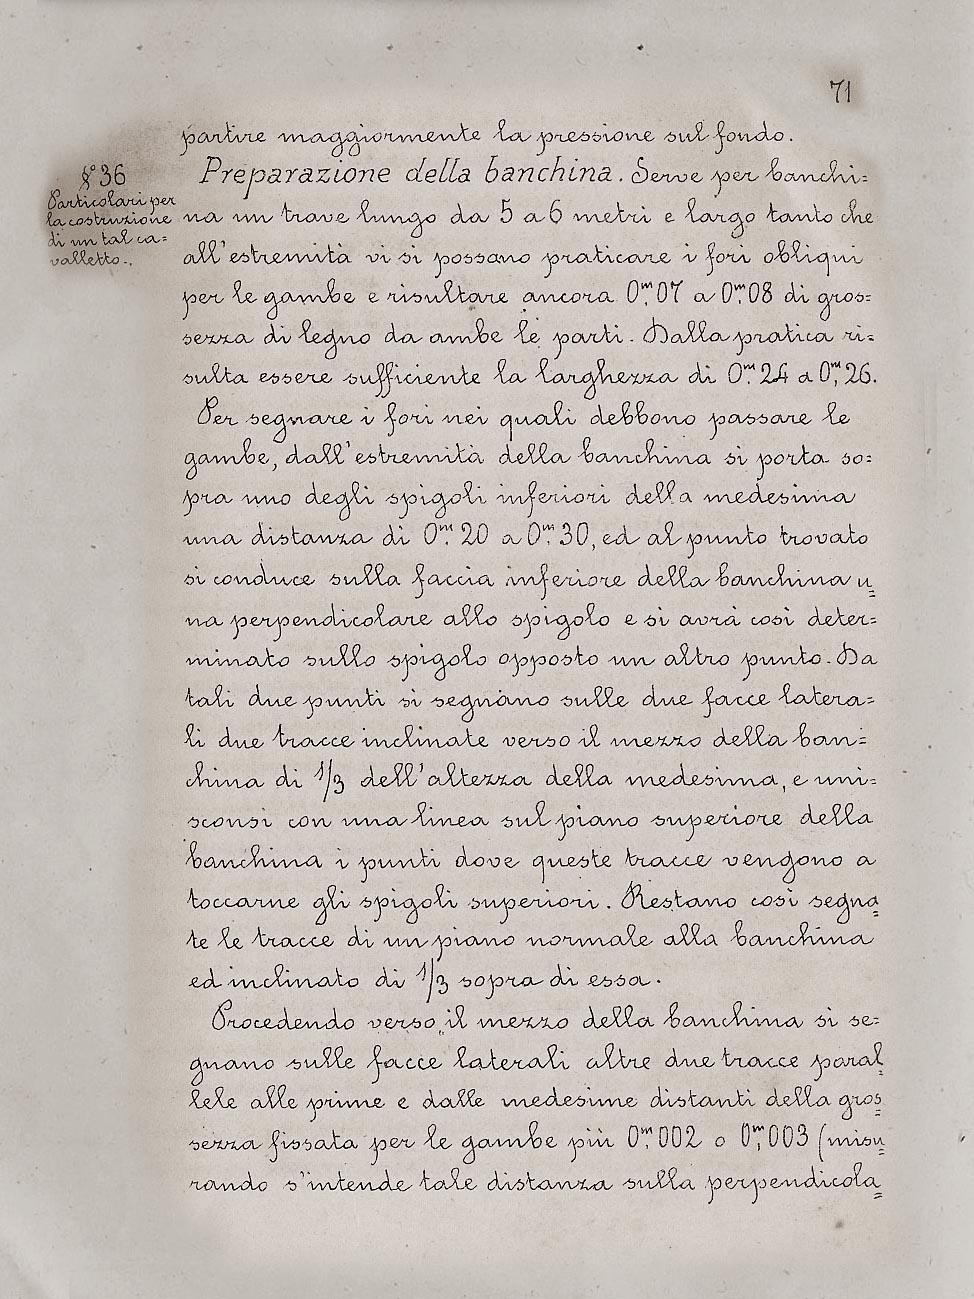 71
partire maggiormente la pressione sul fondo.
§° 36
Particolari per
la costruzione
di un tal ca=
valletto.
Preparazione della banchina. Serve per banchi=
na un trave lungo da 5 a 6 metri e largo tanto che
all'estremità vi si possano praticare i fori obliqui
per le gambe e risultare ancora 0.m07 a 0.m08 di gros=
sezza di legno da ambe le parti. Dalla pratica ri=
sulta essere sufficiente la larghezza di 0.m24 a 0.m26.
Per segnare i fori nei quali debbono passare le
gambe, dall'estremità della banchina si porta so=
pra uno degli spigoli inferiori della medesima
una distanza di 0.m20 a 0.m30, ed al punto trovato
si conduce sulla faccia inferiore della banchina u=
na perpendicolare allo spigolo e si avrà così deter=
minato sullo spigolo opposto un altro punto. Da
tali due punti si segnano sulle due facce latera=
li due tracce inclinate verso il mezzo della ban=
china di 1/3 dell'altezza della medesima, e uni=
sconsi con una linea sul piano superiore della
banchina i punti dove queste tracce vengono a
toccarne gli spigoli superiori. Restano così segna=
te le tracce di un piano normale alla banchina
ed inclinato di 1/3 sopra di essa.
Procedendo verso il mezzo della banchina si se=
gnano sulle facce laterali altre due tracce paral=
lele alle prime e dalle medesime distanti della gros=
sezza fissata per le gambe più 0.m002 o 0.m003 (misu=
rando s'intende tale distanza sulla perpendicola=